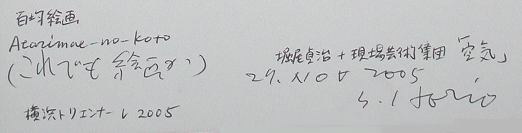 百均絵画
Atarimae-no-koto
(これでも絵画か)
横浜トリエンナーレ 2005
堀尾貞治 + 現場芸術集団「空気」
29. Nov 2005
S. Horio